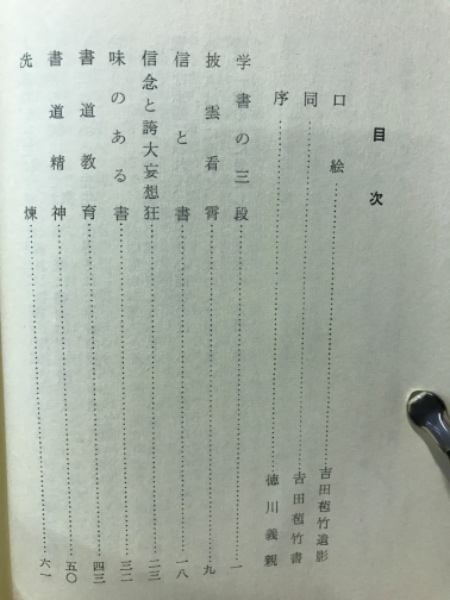 目次
口絵……吉田苞竹遺影
同……吉田苞竹書
序……徳川義親
学書の三段……一
披雲看霄……九
信と書……一八
信念と誇大妄想狂……二三
味のある書……三二
書道教育……四三
書道精神……五〇
洗煉……六一